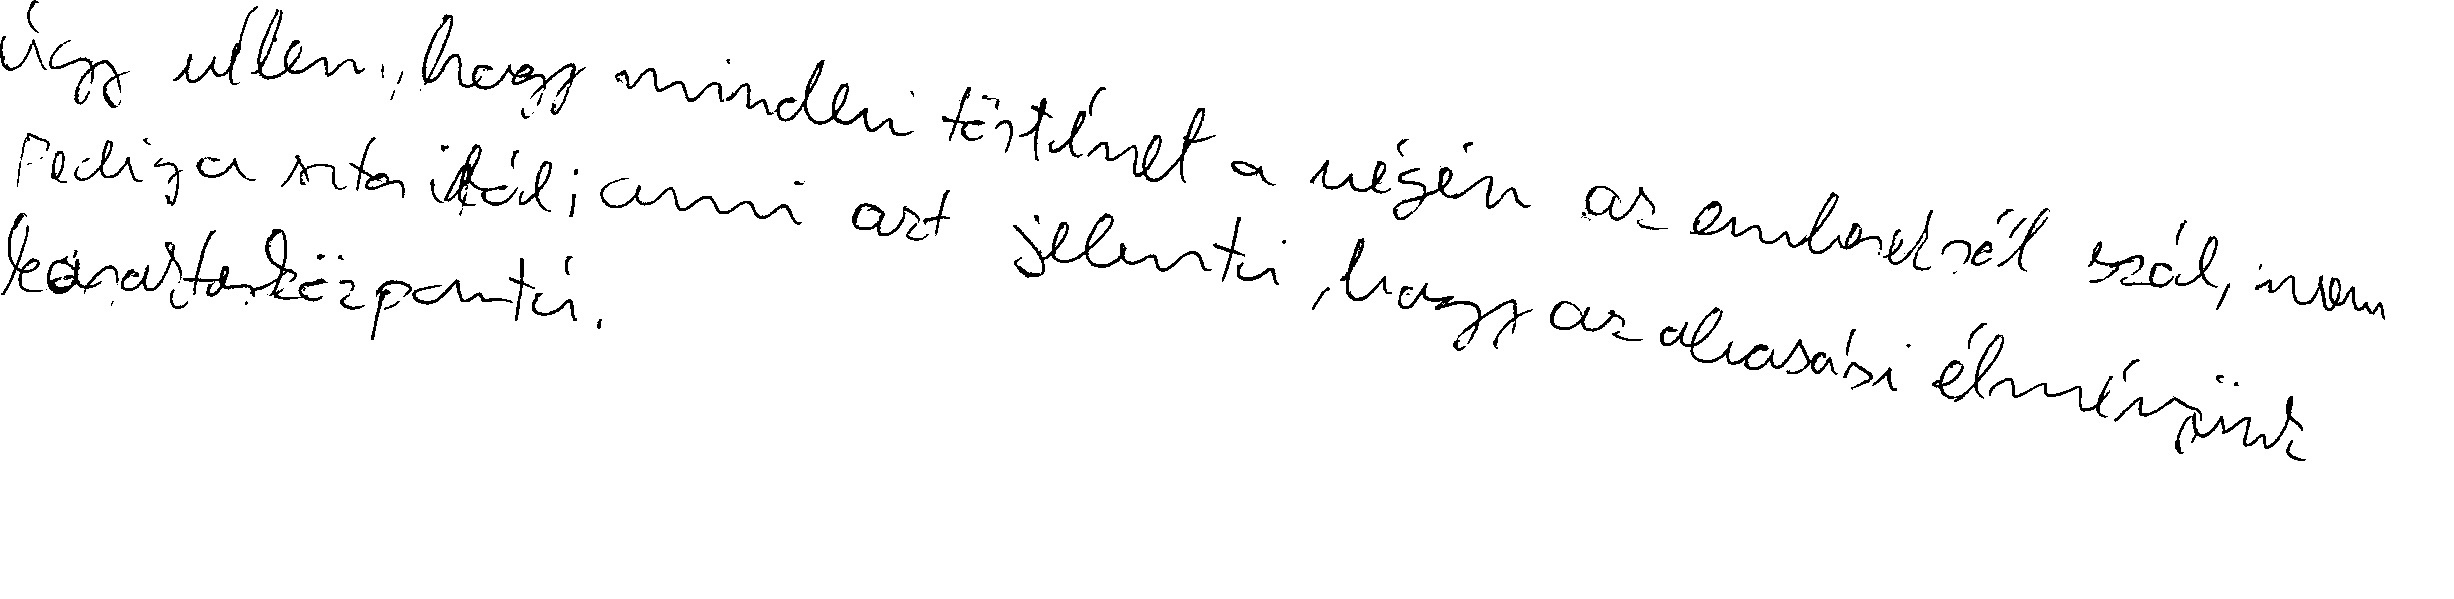 Úgy vélem, hogy minden történet a végén az emberekről szól, nem
pedig a sztoriktól, ami azt jelenti, hogy az olvasási élményünk
karakterközpontú.